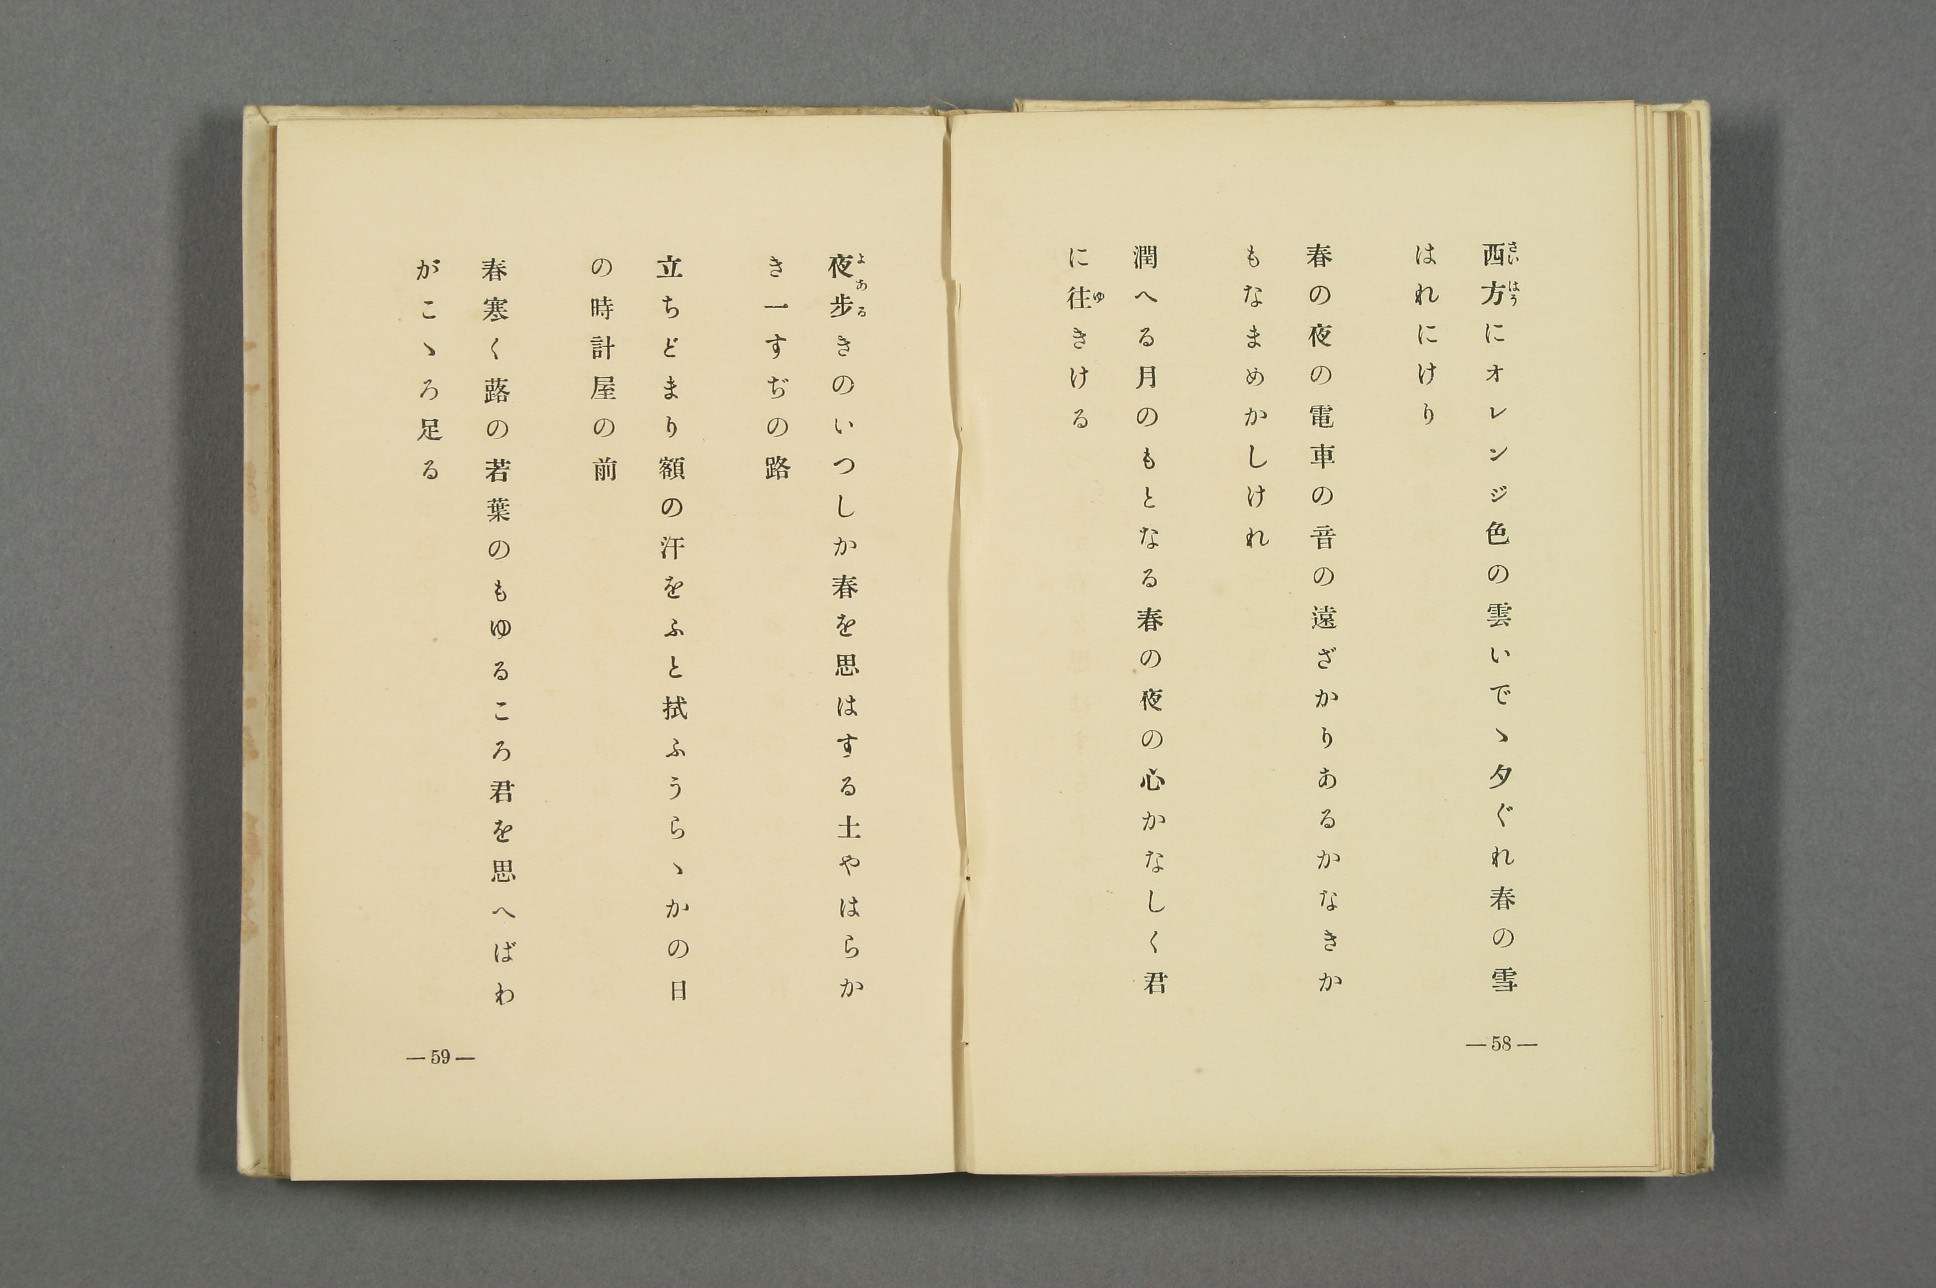 西方にオレンジ色の雲いでゝ夕ぐれ春の雪
はれにけり
春の夜の電車の音の遠ざかりあるかなきか
もなまめかしけれ
潤へる月のもとなる春の夜の心かなしく君
に往きける
— 58 —
夜歩きのいつしか春を思はする土やはらか
き一すぢの路
立ちどまり額の汗をふと拭ふうらゝかの日
の時計屋の前
春寒く蕗の若葉のもゆるころ君を思へばわ
がこゝろ足る
— 59 —